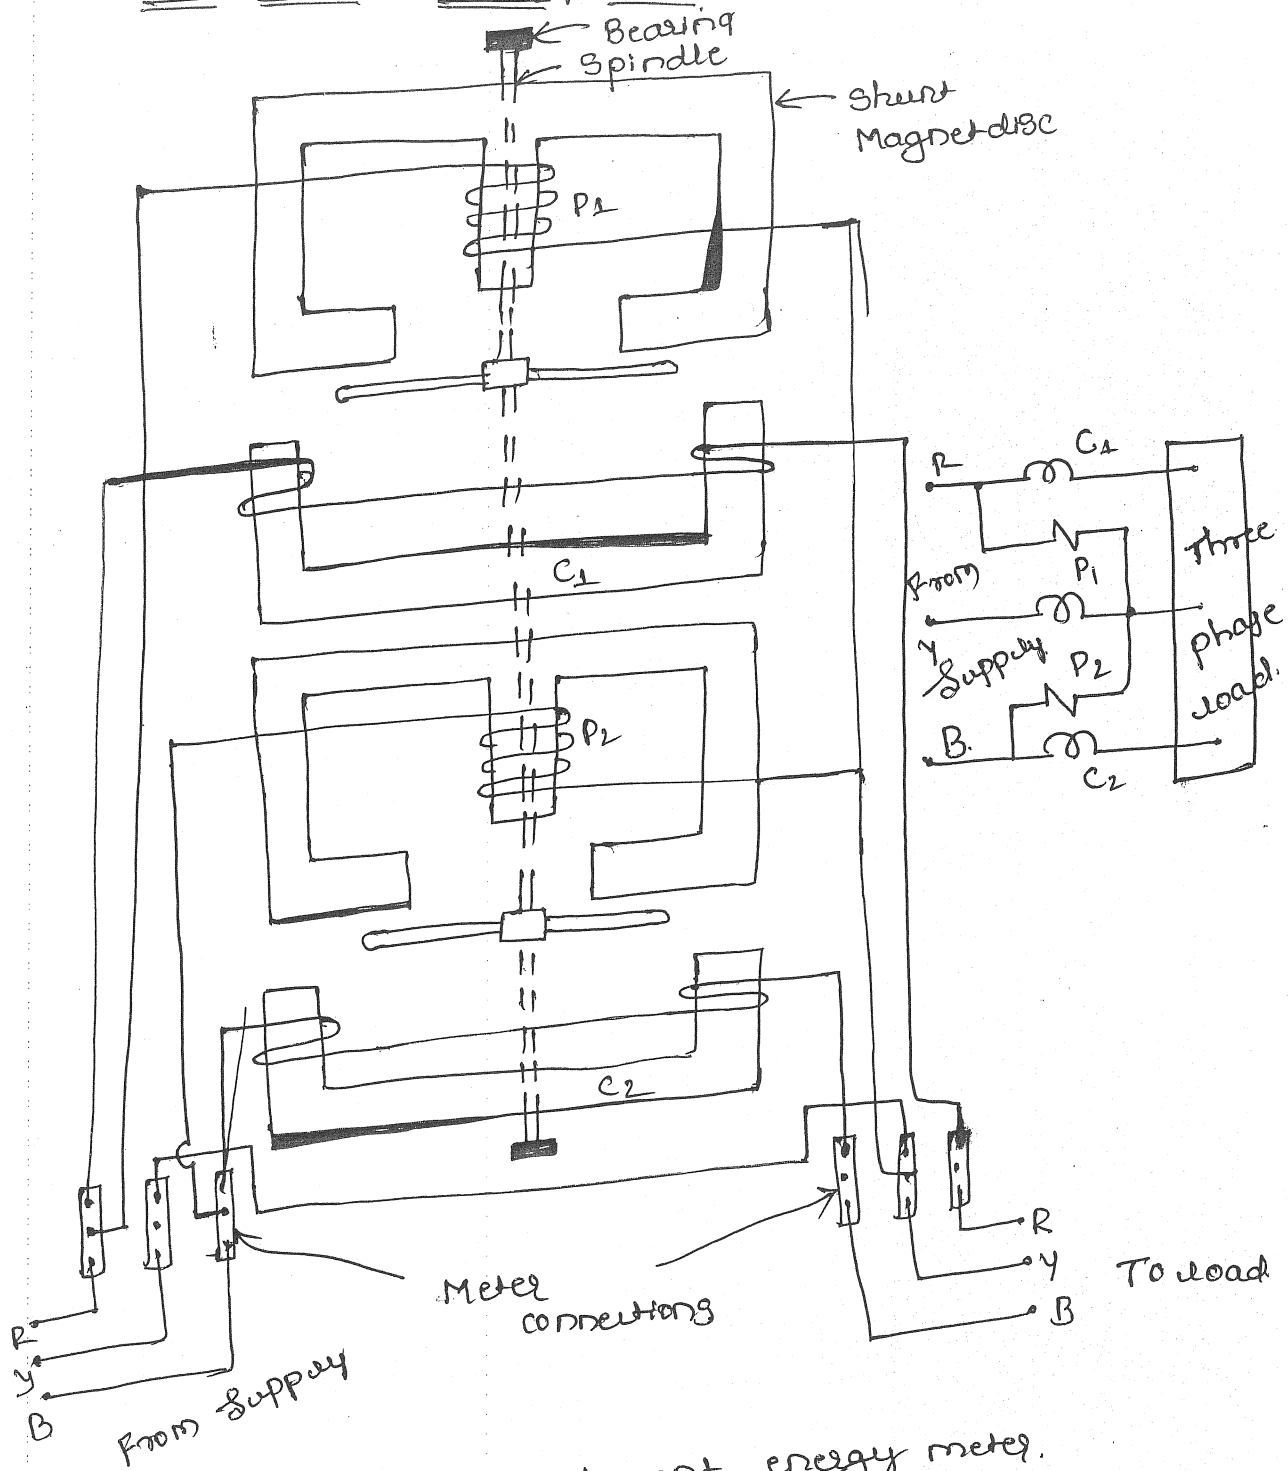 Bearing
Spindle
Shunt
Magnet disc
P1
C1
P2
C2
R
C1
P1
From
Y
Supply
P2
B.
C2
Three
phase
load.
Meter
connections
R
Y
B
To load
R
Y
B
From Supply
energy meter.